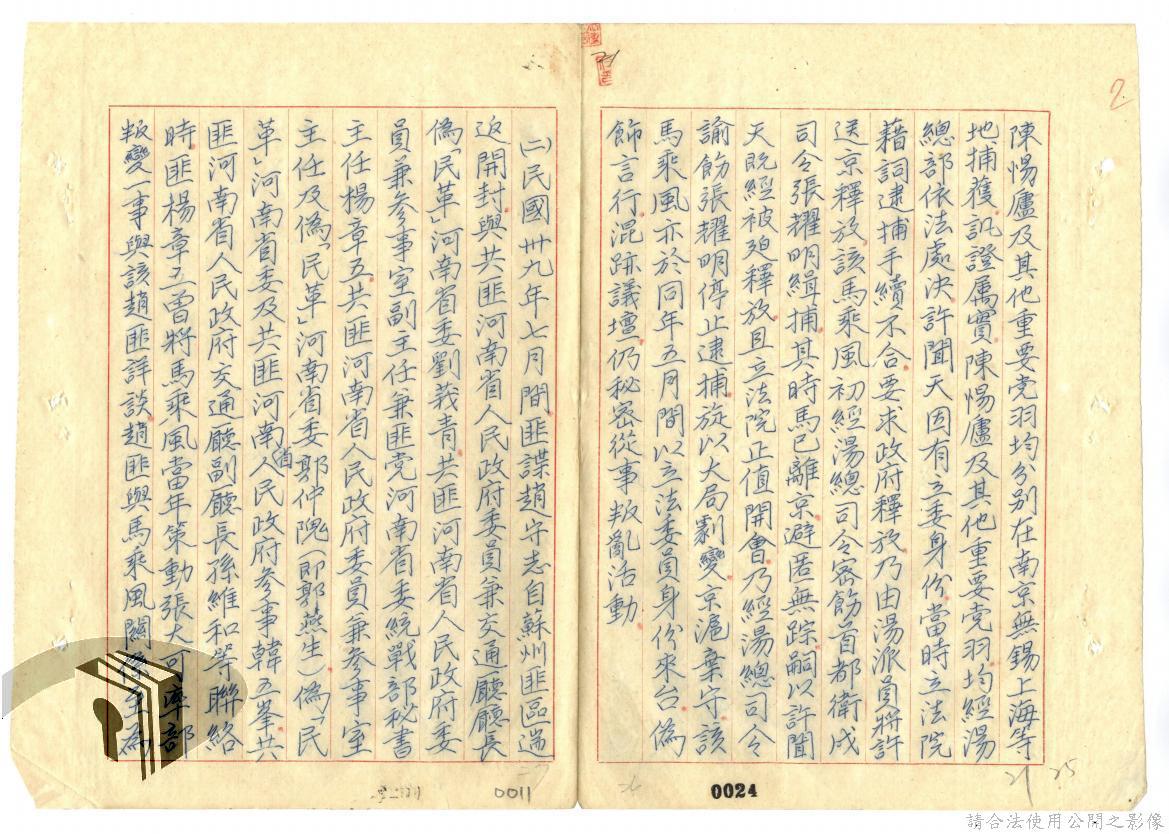 2
陳惕廬及其他重要党羽均分別在南京無錫上海等
地捕獲訊證屬實陳惕廬及其他重要党羽均經湯
總部依法處決許聞天因有立委身份當時立法院
藉詞逮捕手續不合要求政府釋放乃由湯派員將許
送京釋放該馬乘風初經湯總司令密飭首都衛戍
司令張耀明緝捕其時馬已離京避匿無踪嗣以許聞
天既經被迫釋放且立法院正值開會乃經湯總司令
諭飭張耀明停止逮捕旋以大局劇變京滬棄守該
馬乘風亦於同年五月間以立法委員身份來台偽
飾言行混跡議壇仍秘密從事叛亂活動
0024
21 25
(二)民國卅九年七月間匪諜趙守志自蘇州匪區遄
返開封與共匪河南省人民政府委員兼交通廳廳長
偽「民革」河南省委劉莪青共匪河南省人民政府委
員兼參事室副主任兼匪党河南省委統戰部秘書
主任楊章五共匪河南省人民政府委員兼參事室
主任及偽「民革」河南省委郭仲隗(即郭燕生)偽「民
革」河南省委及共匪河南省人民政府參事韓五峯共
匪河南省人民政府交通廳副廳長孫維和等聯絡
時匪楊章五曾將馬乘風當年策動張大可率部
叛變一事與該趙匪詳談趙匪與馬乘風關係至為
0011
請合法使用公開之影像